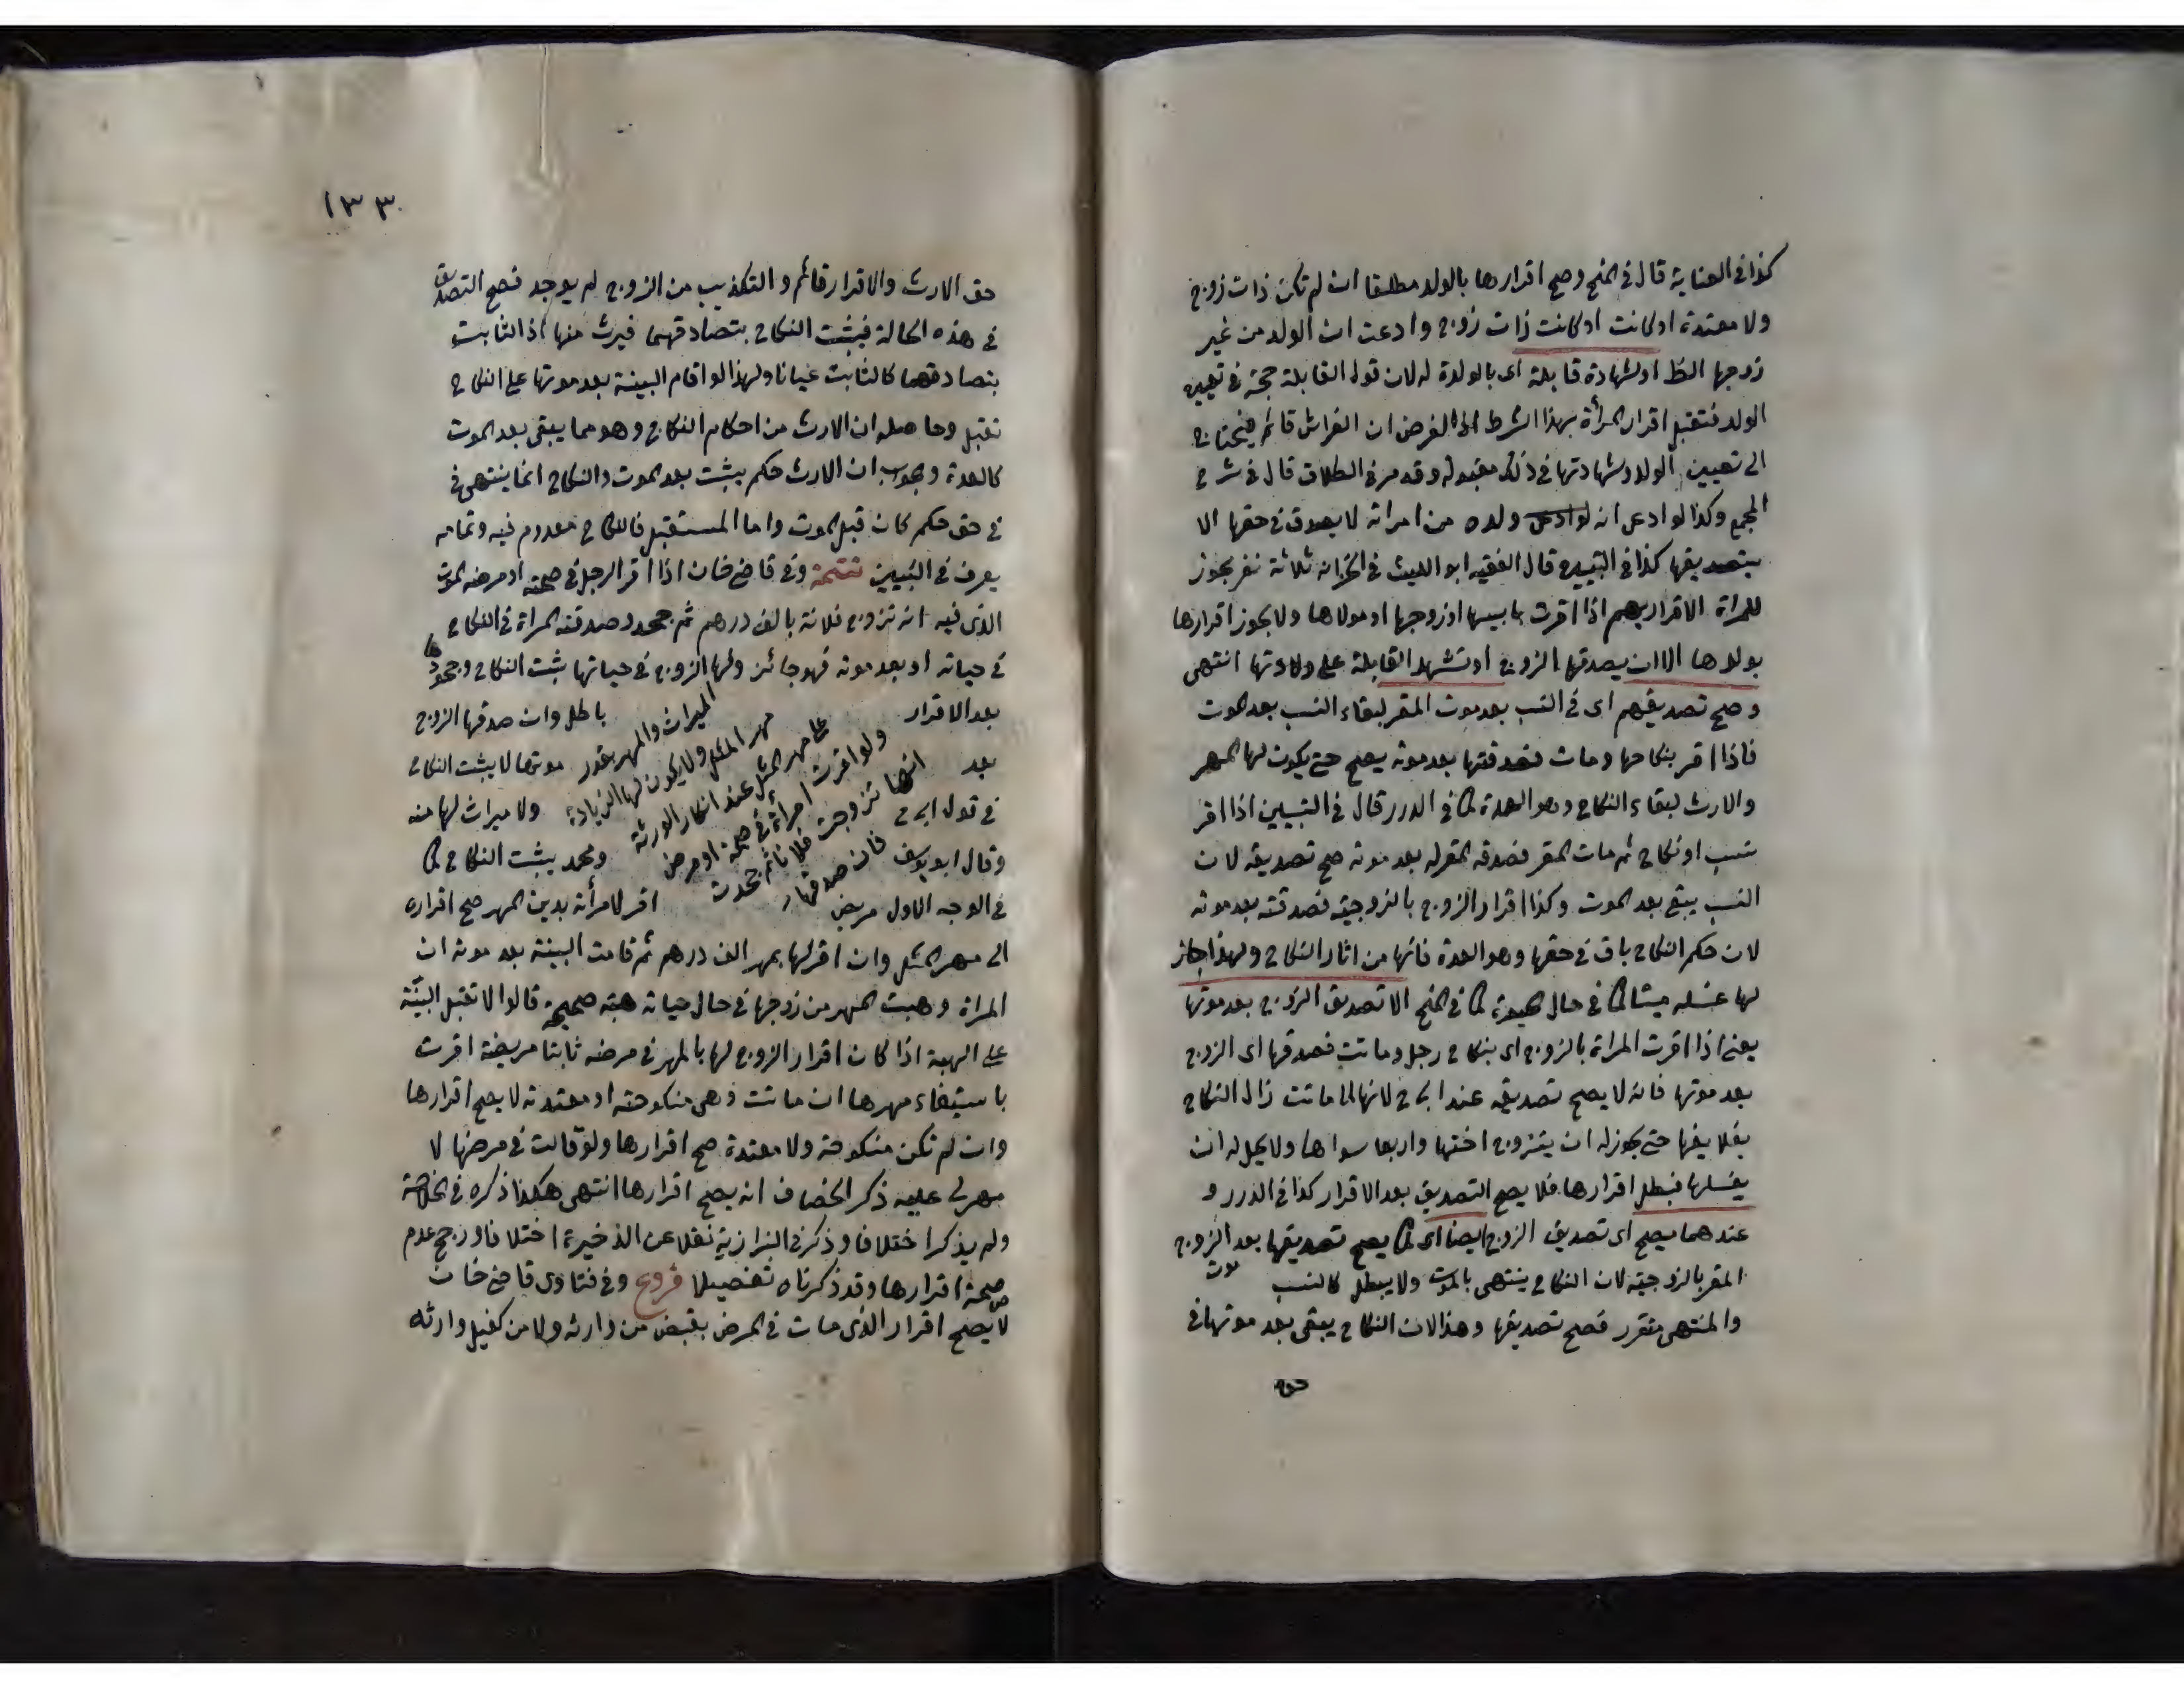 كذا في العناية قال في المنح وصح اقرارها بالولد مطلقا ان لم تكن ذات زوج
ولا معتدة او كانت او كانت ذات زوج وادعت ان الولد من غير
زوجها او لشهادة قابلة اى بالولدة له لان قول القابلة حجة في تعيين
الولد فتقبل اقرار المرأة بهذا الشرط اذ الفرض ان الفراش قائم فيحتاج
الى تعيين الولد وشهادتها في ذلك مقبولة وقد مر في الطلاق قال في شرح
المجمع وكذا لو ادعى انه لو ادعى ولده من امراته لا يصدق في حقها الا
بتصديقها كذا في التبيين قال الفقيه ابو الليث في الخزانه ثلاثة نفر يجوز
للمراة الاقرار بهم اذا اقرت بابيها او زوجها او مولاها ولا يجوز اقرارها
بولدها الا ان يصدقها الزوج او تشهد القابلة على ولادتها انتهى
وصح تصديقهم اى في النسب بعد موت المقر لبقاء النسب بعد الموت
فاذا اقر بنكاحها ومات فصدقتها بعد موته يصح حتى يكون لها المهر
والارث لبقاء النكاح وهو العدة كما في الدرر قال في التبيين اذا اقر
بنسب او نكاح ثم مات المقر فصدقه المقر له بعد موته صح تصديقه لان
النسب يبقى بعد الموت وكذا اقرار الزوج بالزوجية فصدقته بعد موته
لان حكم النكاح باق في حقها وهو العدة فانها من اثار النكاح ولهذا جاز
لها غسله ميتا كما في حال الحيوة كما في المنح الا تصديق الزوج بعد موتها
يعنى اذا اقرت المراة بالزوج اى بنكاح رجل وماتت فصدقها اى الزوج
بعد موتها فانه لا يصح تصديقه عند ابى ح لانها لما ماتت زال النكاح
بعلايقها حتى يجوز له ان يتزوج اختها واربعا سواها ولا يحل له ان
يغسلها فبطل اقرارها فلا يصح التصديق بعد الاقرار كذا في الدرر و
عندهما يصح اى تصديق الزوج ايضا اى كما يصح تصديقها بعد الزوج
موت
المقر بالزوجية لان النكاح ينتهى بالموت ولا يبطل كالنسب
والمنتهى متقرر فصح تصديقها وهذا لان النكاح يبقى بعد موتها في
حق
١٣٣
حق الارث والاقرار قائم والتكذيب من الزوج لم يوجد فصح التصديق
في هذه الحالة فيثبت النكاح بتصادقهما فيرث منها اذ الثابت
بتصادقهما كالثابت عيانا ولهذا لو اقام البينة بعد موتها على النكاح
تقبل وحاصله ان الارث من احكام النكاح وهو مما يبقى بعد الموت
كالعدة وجوب ان الارث حكم يثبت بعد الموت والنكاح انما ينتهى في
في حق حكم كان قبل الموت واما المستقبل فالنكاح معدوم فيه وتمامه
يعرف في التبيين تتمة وفي قاضيخان اذا اقر الرجل في صحته او مرضه الموت
الذى فيه انه تزوج فلانة بالف درهم ثم جحد وصدقته المراة في النكاح
في حياته او بعد موته فهو جائز ولها
الميراث والمهر بقدر
مهر المثل ولا يكون لها الزيادة
على مهر المثل عند انكار الورثة
ولو اقرت امرأة في صحة او مرض
انها تزوجت فلانا ثم جحدت
فان صدقها
الزوج في حياتها ثبت النكاح وجحودها
بعد الاقرار باطل وان صدقها الزوج
بعد موتها لا يثبت النكاح
في قول ابى ح ولا ميراث لها منه
وقال ابو يوسف ومحمد يثبت النكاح كما
في الوجه الاول مريض اقر لامرأته بدين المهر صح اقراره
الى مهر المثل وان اقر لها بمهر الف درهم ثم قامت البينة بعد موته ان
المراة وهبت المهر من زوجها في حال حياته هبة صحيحة قالوا لا تقبل البينة
على الهبة اذا كان اقرار الزوج لها بالمهر في مرضه ثابتا مريضة اقرت
باستيفاء مهرها ان ماتت وهى منكوحته او معتدته لا يصح اقرارها
وان لم تكن منكوحة ولا معتدة صح اقرارها ولو قالت في مرضها لا
مهر لى عليه ذكر الخصاف انه يصح اقرارها انتهى هكذا ذكره في الخلاصة
ولم يذكر اختلافا وذكر في البزازية نقلا عن الذخيرة اختلافا ورجح عدم
صحة اقرارها وقد ذكرناه تفصيلا فروع وفي فتاوى قاضي خان
لا يصح اقرار الذى مات في المرض بقبض من وارثه ولا من كفيل وارثه